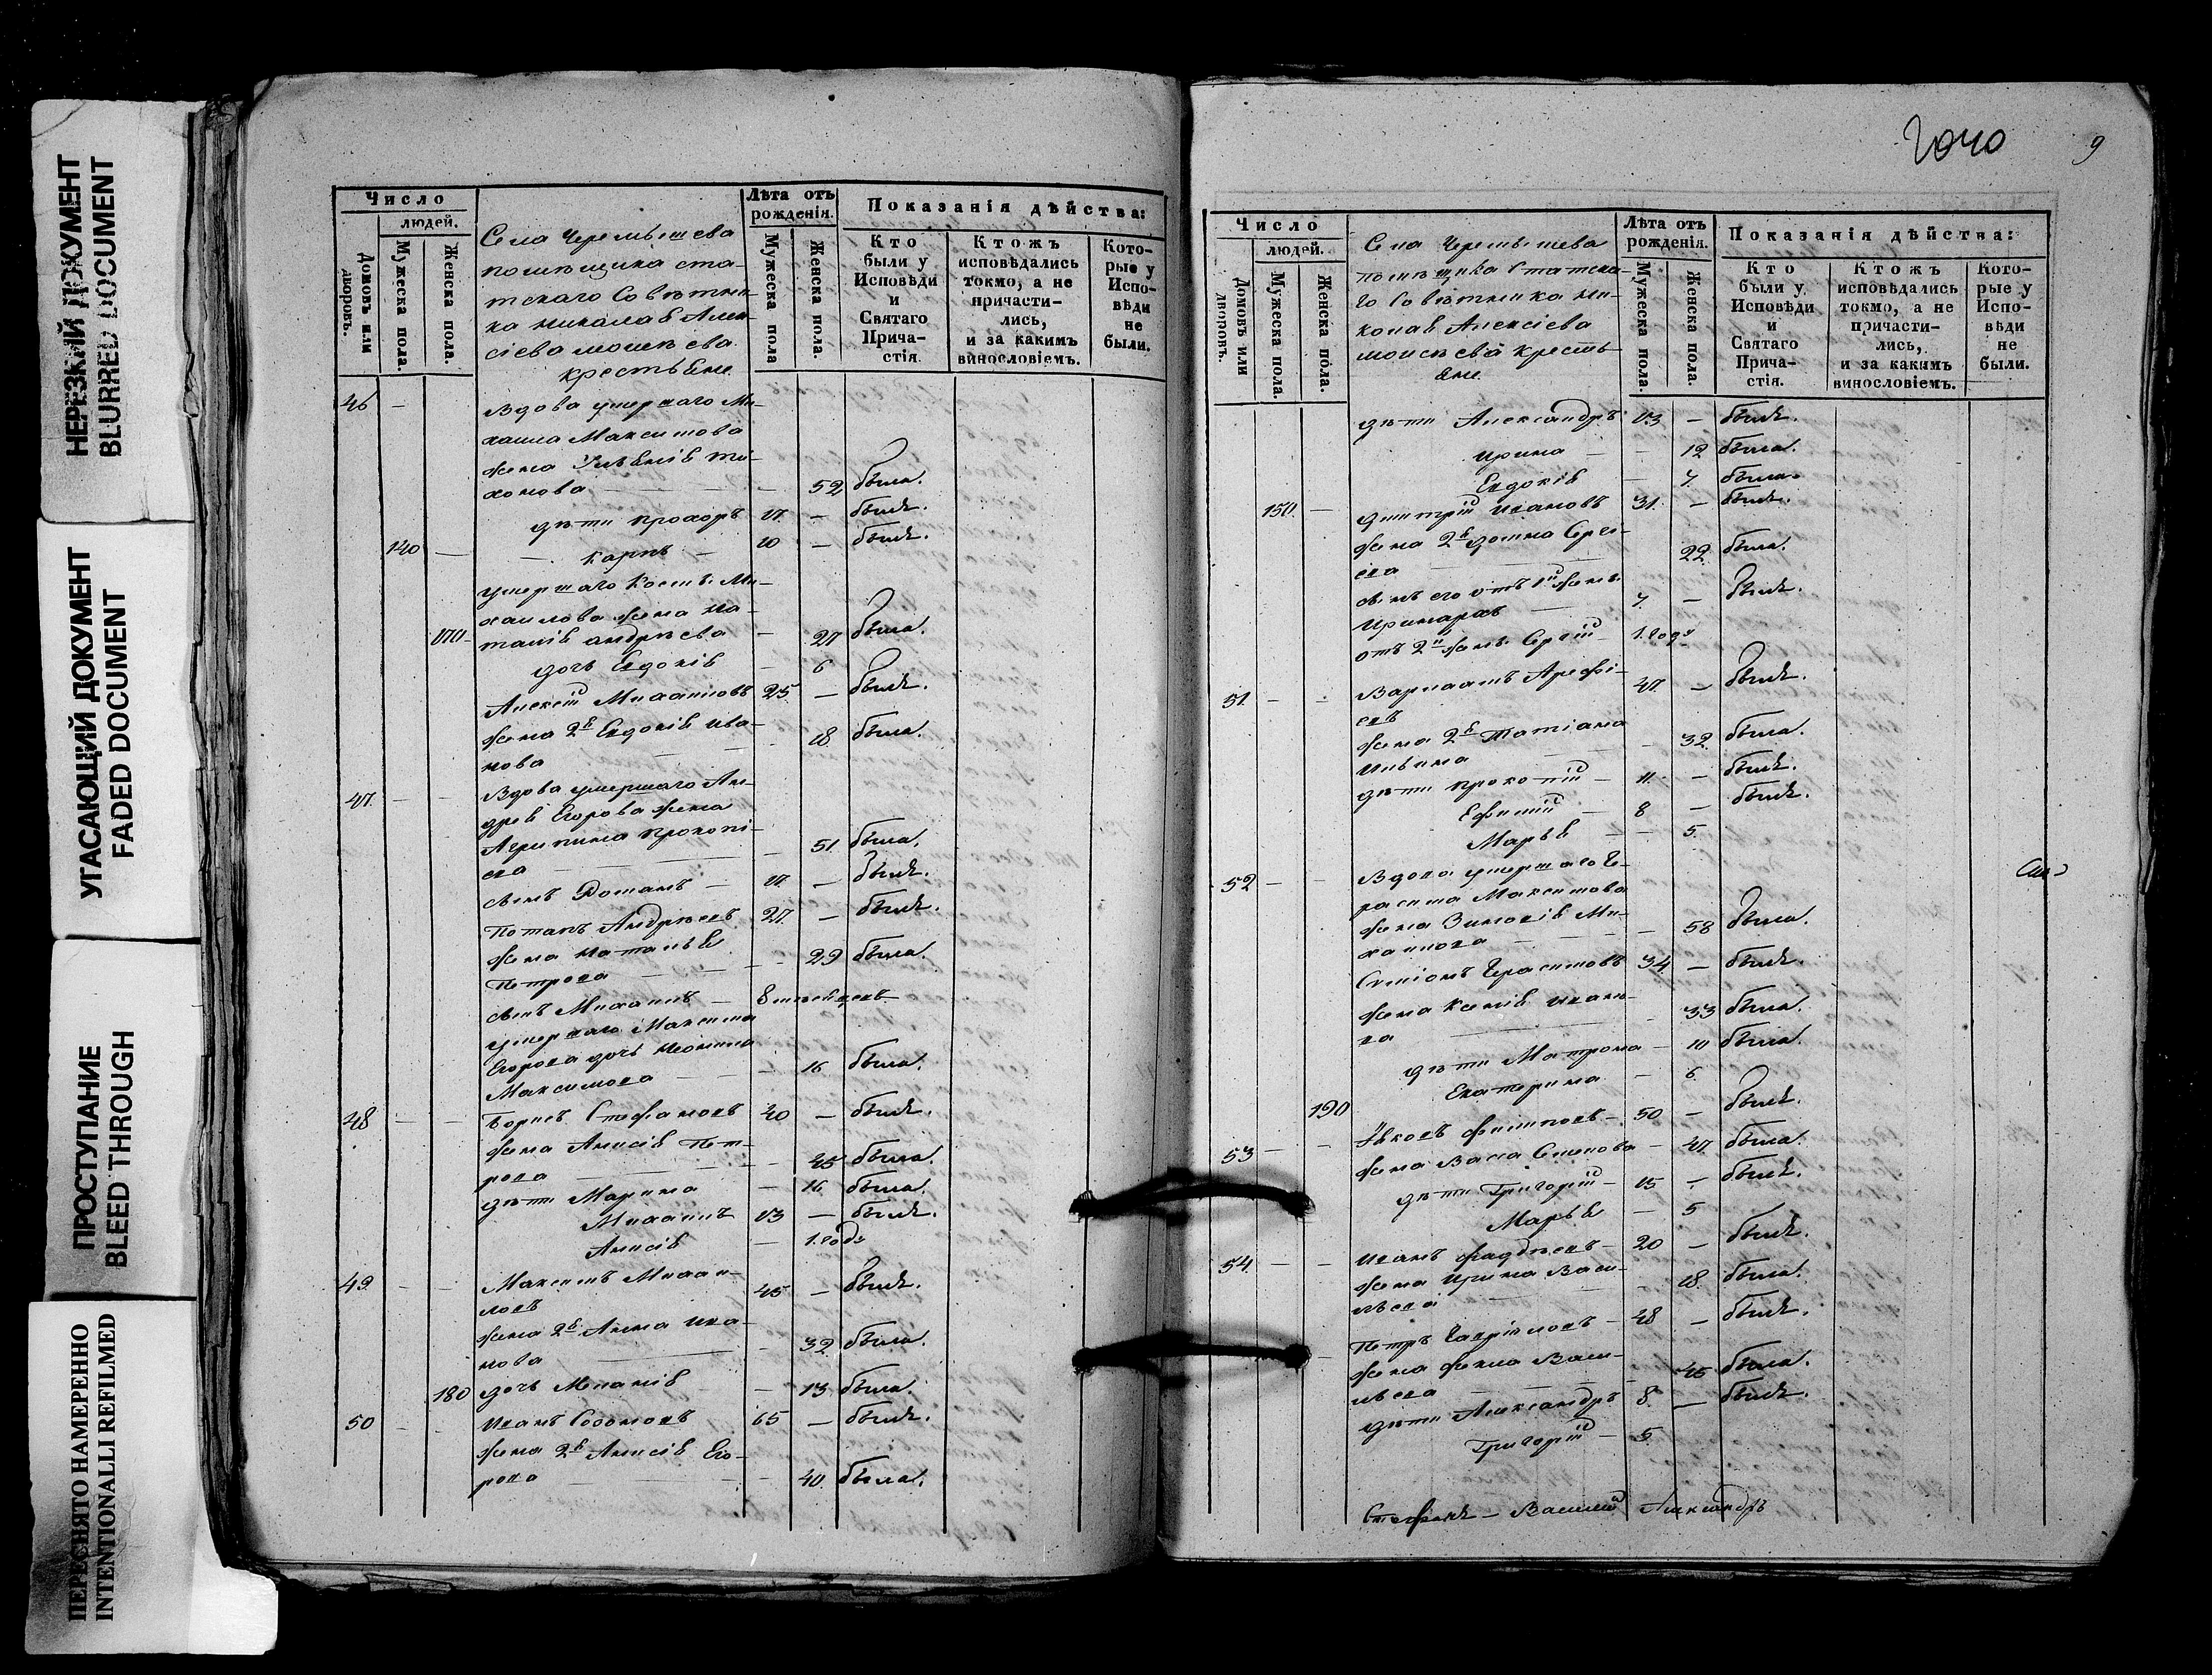 НЕРЕЗКИЙ ДОКУМЕНТ
BLURRED DOCUMENT
УГАСАЮЩИЙ ДОКУМЕНТ
FADED DOCUMENT
ПРОСТУПАНИЕ
BLEED THROUGH
ПЕРЕСНЯТО НАМЕРЕННО
INTENTIONALLI REFILMED
Число
людей.
Домовъ или дворовъ.
Мужеска пола.
Женска пола.
Села Черемышева
помѣщика ста-
тскаго Совѣтни-
ка Николая Алек-
сіева Моисѣева
крестьяне.
Лѣта отъ рожденія.
Мужеска пола
Женска пола.
Показанія дѣйства:
Кто были у Исповѣди и Святаго Прича- стія.
Ктожъ исповѣдались токмо, а не причасти- лись, и за какимъ винословіемъ.
Кото- рые у Испо- вѣди не были.
46 — Вдова умершаго Ми-
хаила Максимова
жена Ти-
хонова — — 52 была.
дѣти Прохоръ 17. — былъ.
140 — — Карпъ — 10 — былъ.
умершаго Ми-
хаилова жена На-
170 талія Андрѣева — 27 была.
дочь Евдокія — 6
Алексій Михаиловъ 25. — былъ.
жена 2я Евдокія Ива-
нова — 18 была.
47. — — Вдова умершаго Ан-
дрея Егорова жена
Агрипина Прокопі-
ева — — 51. была.
сынъ Романъ — 17. — былъ.
Потапъ Андрѣевъ 27. — былъ.
жена Наталья
Петрова — — 29 была.
сынъ Михаилъ —
умершаго Максима
Егорова дочь
Максимова — — 16 была.
48 — — Борисъ Стефановъ 40 — былъ.
жена Анисія Пет-
рова — — 45 была.
дѣти Марина — 16 была.
Михаилъ 13 — былъ.
Анисія — 1. годъ
49. — — Максимъ Михаи-
ловъ 45 — былъ.
жена 2я Анна Ива-
нова — — 32 была.
180 дочь Меланія — 13 была.
50 — — Иванъ Софоновъ 65 — былъ.
жена 2я Анисія Его-
рова — — 40. была.
2040
9
Число
людей.
Домовъ или дворовъ.
Мужеска пола.
Женска пола.
Села Черемышева
помѣщика Статска-
го Совѣтника Ни-
колая Алексіева
Моисѣева кресть-
яне.
Лѣта отъ рожденія.
Мужеска пола.
Женска пола.
Показанія дѣйства:
Кто были у Исповѣди и Святаго Прича- стія.
Ктожъ исповѣдались токмо, а не причасти- лись, и за какимъ винословіемъ.
Кото- рые у Испо- вѣди не были.
дѣти Александръ 13 — былъ.
Ирина — — 12 была.
Евдокія — 7. была.
150. — Димитрій Ивановъ 31. — былъ.
жена 2я Домна Серге-
ева — 22. была.
сынъ его отъ 1й жены
Иринархъ — 7. — былъ.
отъ 2й жены Сергій 1. годъ
51. — — Варлаамъ Арефі-
евъ 47. — былъ.
жена 2я Татіана
Ильина — — 32. была.
дѣти Прокопій — 11. — былъ.
Ефимій — 8 — былъ.
Марья — — 5.
52 — — Вдова умершаго Ге-
расима Максимова
жена Зиновія Ми-
хаилова — — 58 была.
Герасимовъ 34 — былъ.
жена Ксенія Ивано-
ва — — 33 была.
дѣти Матрона — 10 была.
Екатерина — 6.
190
53 — — Яковъ Филиповъ — 50 — былъ.
жена Васа — 47. была.
дѣти Григорій — 15 — былъ.
Марья — 5
54. — — Иванъ Фаддѣевъ — 20 — былъ.
жена Ирина Васи-
льева — — 18. была.
Петръ Гавріиловъ — 48 — былъ.
жена Фекла Васи-
льева — — 45 была.
дѣти Александръ 8. — былъ.
Григорій — 5.
Стефанъ — Василій Александръ